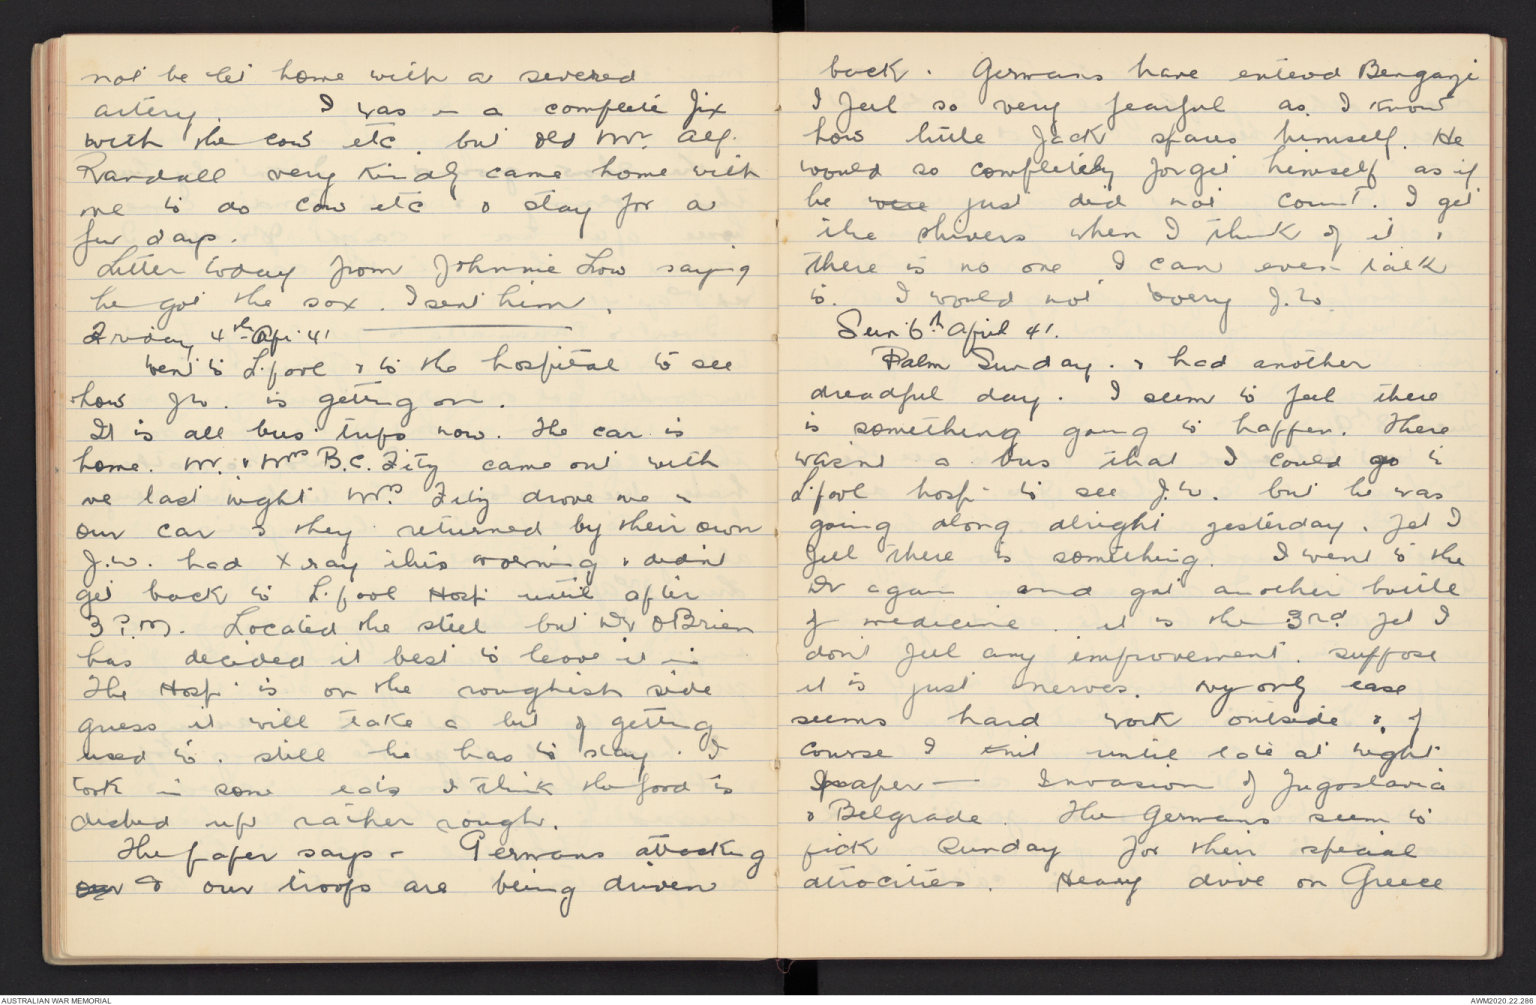 not be let home with a severed
artery. I was in a complete fix
with the cows etc. but old Mr. Alf.
Randall very kindly came home with
me to do cow etc & stay for a
few days.
Letter today from Johnnie Low saying
he got the sox. I sent him.
Friday 4th Apr. 41
Went to L.pool & to the hospital to see
how J.W. is getting on.
It is all bus trips now. The car is
home. Mr. & Mrs B.C. Fity came out with
me last night Mrs Fity drove me in
our car & they returned by their own
J.W. had X ray this morning & didnt
get back to L.pool Hosp. until after
3 P.M. Located the steel but Dr OBrien
has decided it best to leave it in
The Hosp. is on the roughish side
guess it will take a bit of getting
used to. still he has to stay. I
took in some eats I think the food is
dished up rather rough.
The paper says - Germans attacking
our & our troops are being driven
back. Germans have entered Bengazi
I feel so very fearful as I know
how little Jack spares himself. He
would so completely forget himself as if
he were just did not count. I get
the shivers when I think of it,
there is no one I can even talk
to. I would not worry J.W.
Sun. 6th April 41.
Palm Sunday. & had another
dreadful day. I seem to feel there
is something going to happen. There
wasnt a bus that I could go to
L.pool hosp. to see J.W. but he was
going along alright yesterday. Yet I
feel there is something. I went to the
Dr again and got another bottle
of medicine. it is the 3rd yet I
dont feel any improvement. suppose
it is just nerves. My only ease
seems hard work outside & of
course I knit until late at night
Paper - Invasion of Jugoslavia
& Belgrade. The Germans seem to
pick Sunday for their special
atrocities. Heavy drive on Greece
AUSTRALIAN WAR MEMORIAL
AWM2020.22.286